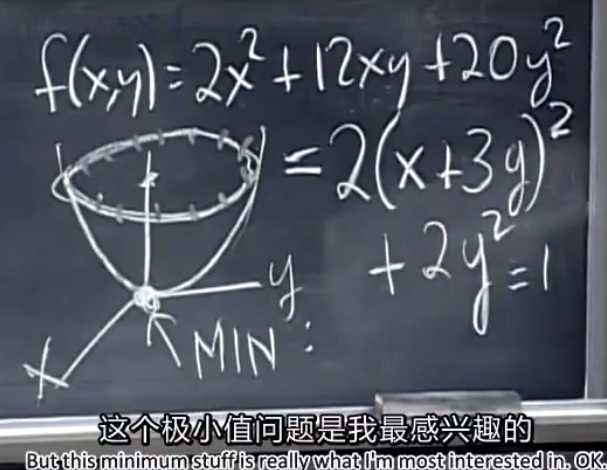 f(x,y)=2x²+12xy+20y²
=2(x+3y)²
+2y²=1
y
MIN:
x
这个极小值问题是我最感兴趣的
But this minimum stuff is really what I'm most interested in. OK